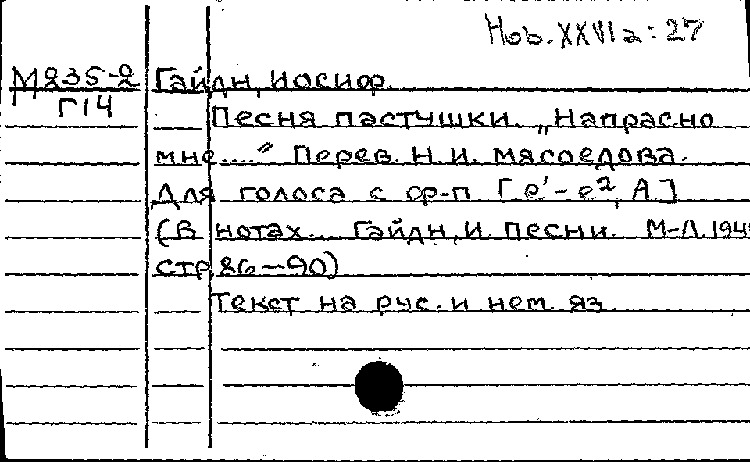 Hob. XXVIa: 27
М235-2 Гайдн, Иосиф.
Г14
Песня пастушки. „Напрасно
мне....“ Перев. Н. И. Мясоедова.
Для голоса с ф-п. [e¹-e², A]
(В нотах... Гайдн, И. Песни. М-Л. 194
стр. 86-90)
Текст на рус. и нем. яз